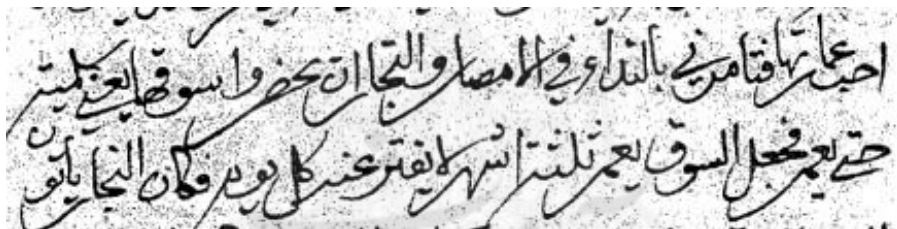 احب عمارتها فتامرني بالنداء في الامصار والتجار ان يحضروا سوقها يعني كلميتر
حتى يعمر فجعل السوق يعمر ثلثة اشهر لا يفتر عند كل يوم فكان التجار ياتون